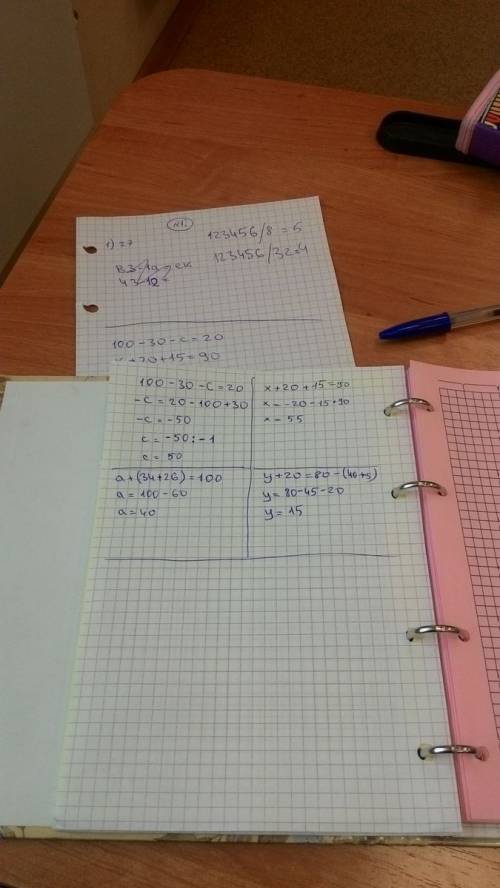 №1.
1) 27
123456/8 = 5
123456/32=4
43-12
100-30-c=20
x+20+15=90
100-30-c=20
-c=20-100+30
-c=-50
c=-50:-1
c=50
x+20+15=90
x=-20-15+90
x=55
a+(34+26)=100
a=100-60
a=40
y+20=80-(40+5)
y=80-45-20
y=15